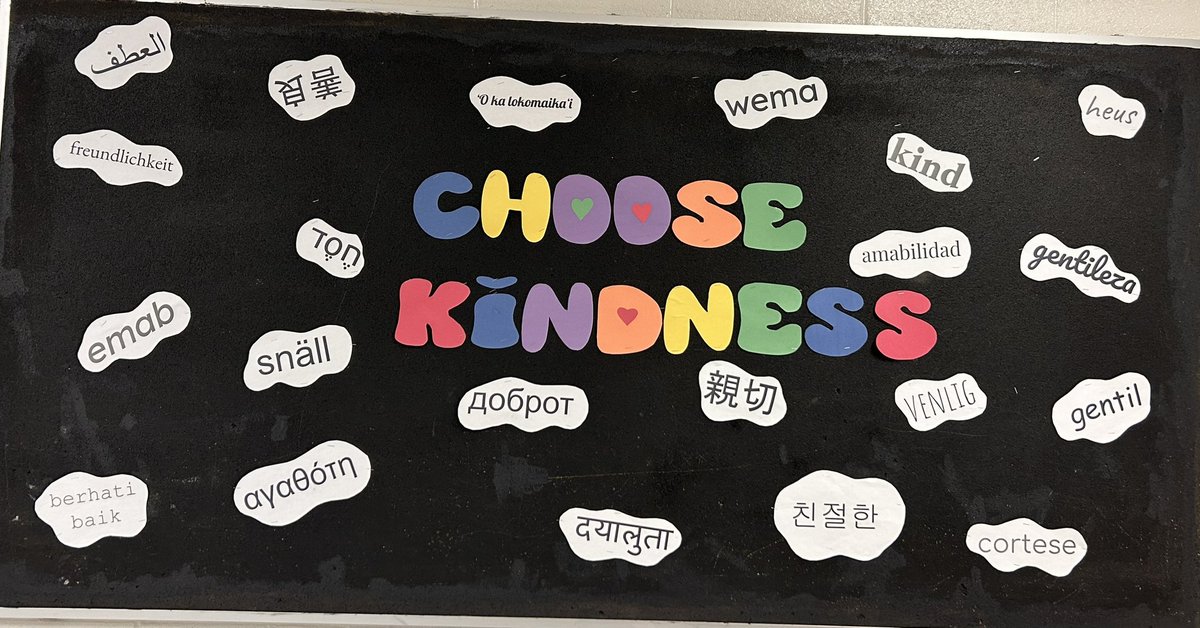 العطف
善良
ʻO ka lokomaikaʻi
wema
heus
freundlichkeit
kind
CHOOSE
חֶסֶד
amabilidad
gentileza
KINDNESS
emab
snäll
доброт
親切
VENLIG
gentil
αγαθότη
berhati
baik
दयालुता
친절한
cortese